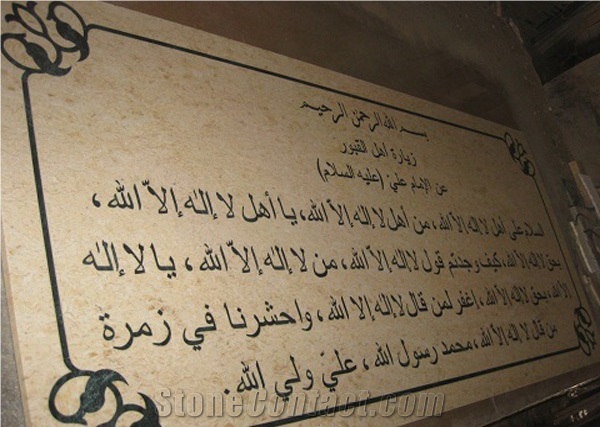 بسم الله الرحمن الرحيم
زيارة اهل القبور
عن الإمام علي (عليه السلام)
السلام على أهل لا إله إلا الله، من أهل لا إله إلا الله، يا أهل لا إله إلاّ الله،
بحق لا إله إلا الله، كيف وجدتم قول لا إله إلاّ الله، من لا إله إلاّ الله، يا لا إله
إلاّ الله، بحق لا إله إلاّ الله، إغفر لمن قال لا إله إلا الله، واحشرنا في زمرة
من قال لا إله إلا الله، محمد رسول الله، عليّ ولي الله.
StoneContact.com